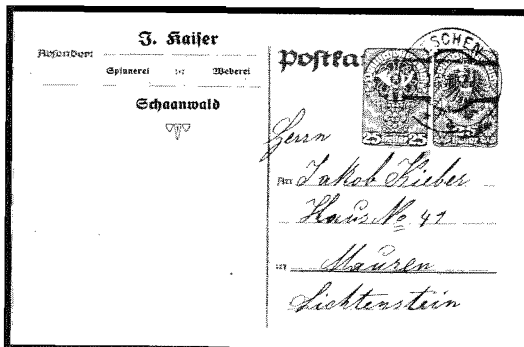 J. Kaiser
Absender:
Spinnerei
Weberei
Schaanwald
Postka
SCHEN
25 25
Herrn
An Jakob Kieber
Haus No 41
in Mauren
Lichtenstein